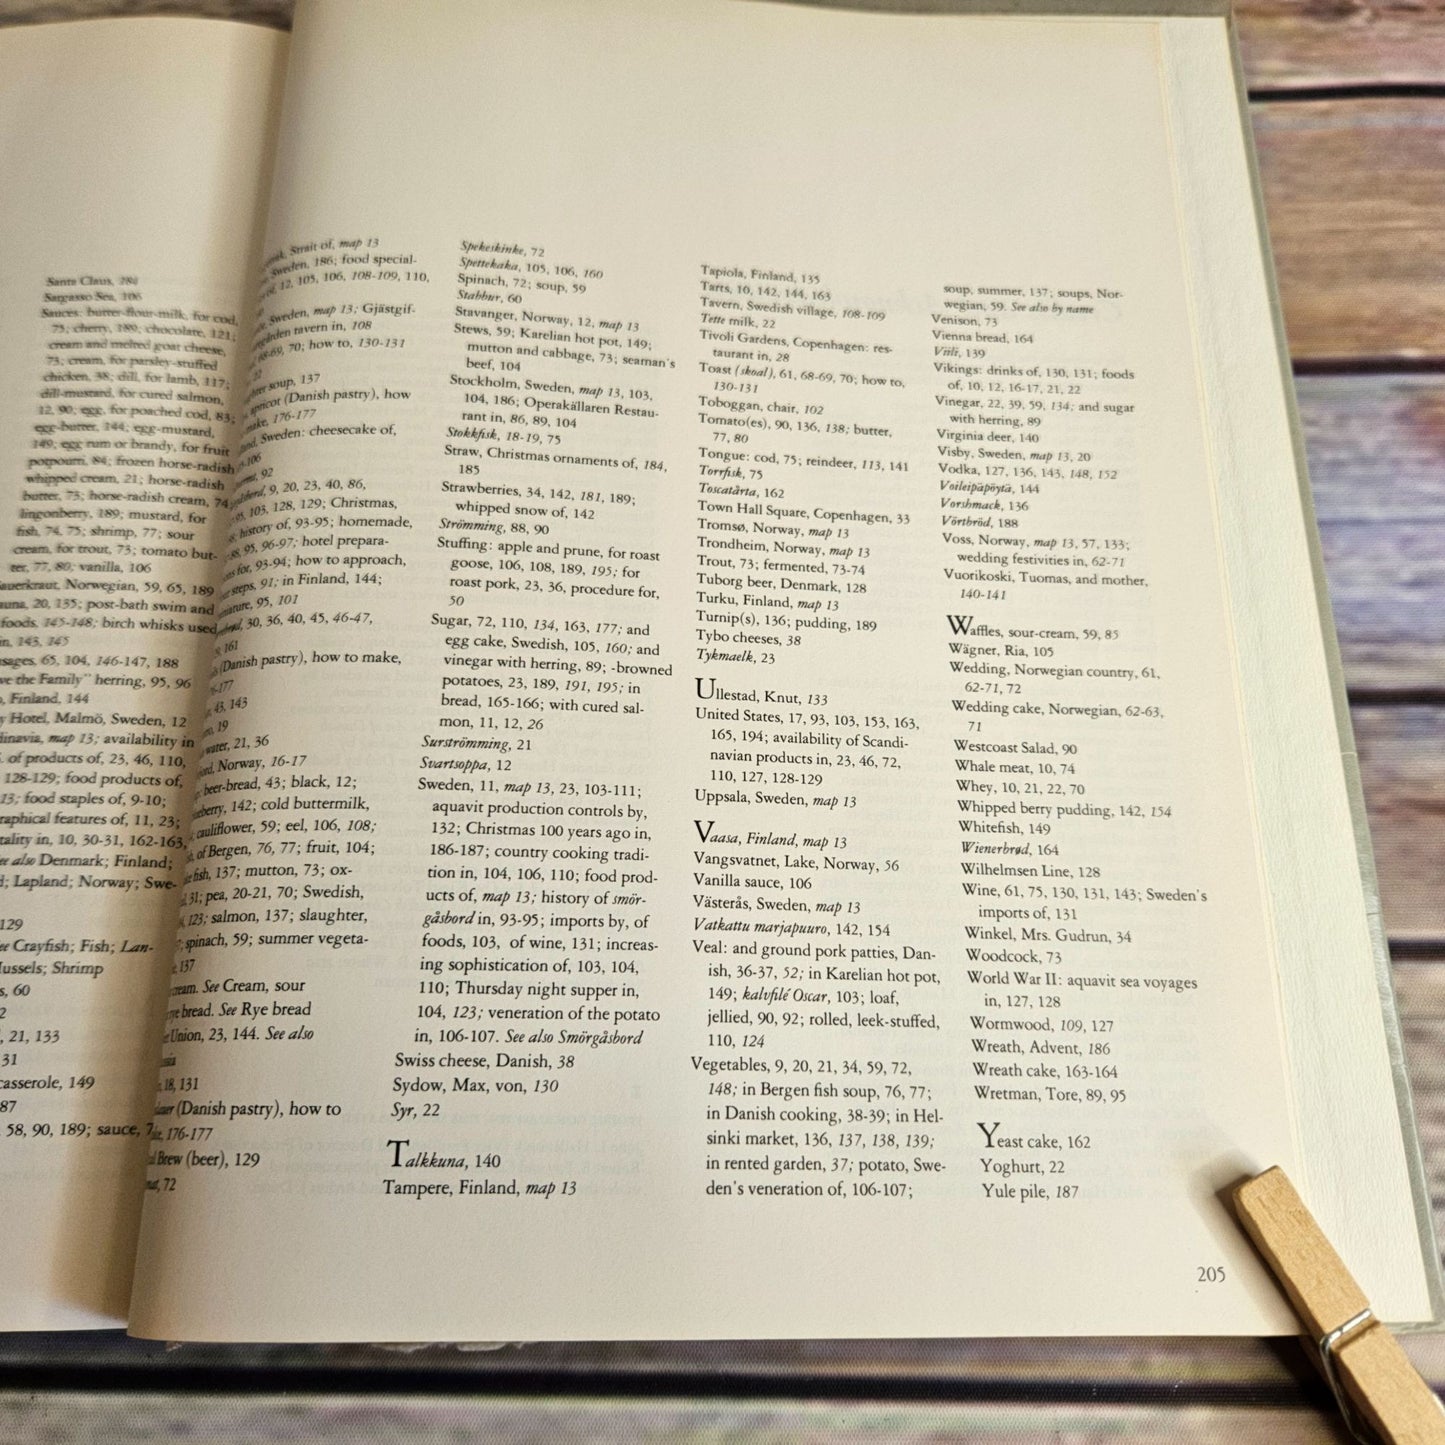 Santa Claus, 184
Sargasso Sea, 106
Sauces: butter-flour-milk, for cod,
75; cherry, 189; chocolate, 121;
cream and melted goat cheese,
73; cream, for parsley-stuffed
chicken, 38; dill, for lamb, 117;
dill-mustard, for cured salmon,
12, 90; egg, for poached cod, 83;
egg-butter, 144; egg-mustard,
149; egg rum or brandy, for fruit
potpourri, 84; frozen horse-radish
whipped cream, 21; horse-radish
butter, 73; horse-radish cream, 74
lingonberry, 189; mustard, for
fish, 74, 75; shrimp, 77; sour
cream, for trout, 73; tomato but-
ter, 77, 80; vanilla, 106
auerkraut, Norwegian, 59, 65, 189
auna, 20, 135; post-bath swim and
foods, 145-148; birch whisks used
in, 143, 145
sages, 65, 104, 146-147, 188
ve the Family" herring, 95, 96
, Finland, 144
y Hotel, Malmö, Sweden, 12
dinavia, map 13; availability in
. of products of, 23, 46, 110,
128-129; food products of,
13; food staples of, 9-10;
raphical features of, 11, 23;
tality in, 10, 30-31, 162-163,
ee also Denmark; Finland;
d; Lapland; Norway; Swe-
129
ee Crayfish; Fish; Lan-
ussels; Shrimp
s, 60
2
, 21, 133
31
casserole, 149
87
58, 90, 189; sauce, 7
Strait of, map 13
Sweden, 186; food special-
of, 12, 105, 106, 108-109, 110,
Sweden, map 13; Gjästgif-
garden tavern in, 108
68-69, 70; how to, 130-131
22
soup, 137
apricot (Danish pastry), how
make, 176-177
land, Sweden: cheesecake of,
106
92
9, 20, 23, 40, 86,
95, 103, 128, 129; Christmas,
history of, 93-95; homemade,
88, 95, 96-97; hotel prepara-
ons for, 93-94; how to approach,
steps, 91; in Finland, 144;
miniature, 95, 101
30, 36, 40, 45, 46-47,
161
(Danish pastry), how to make,
176-177
43, 143
19
water, 21, 36
Norway, 16-17
beer-bread, 43; black, 12;
blueberry, 142; cold buttermilk,
cauliflower, 59; eel, 106, 108;
of Bergen, 76, 77; fruit, 104;
fish, 137; mutton, 73; ox-
31; pea, 20-21, 70; Swedish,
123; salmon, 137; slaughter,
spinach, 59; summer vegeta-
137
cream. See Cream, sour
rye bread. See Rye bread
Union, 23, 144. See also
18, 131
(Danish pastry), how to
176-177
Brew (beer), 129
72
Spekeskinke, 72
Spettekaka, 105, 106, 160
Spinach, 72; soup, 59
Stabbur, 60
Stavanger, Norway, 12, map 13
Stews, 59; Karelian hot pot, 149;
mutton and cabbage, 73; seaman's
beef, 104
Stockholm, Sweden, map 13, 103,
104, 186; Operakällaren Restau-
rant in, 86, 89, 104
Stokkfisk, 18-19, 75
Straw, Christmas ornaments of, 184,
185
Strawberries, 34, 142, 181, 189;
whipped snow of, 142
Strömming, 88, 90
Stuffing: apple and prune, for roast
goose, 106, 108, 189, 195; for
roast pork, 23, 36, procedure for,
50
Sugar, 72, 110, 134, 163, 177; and
egg cake, Swedish, 105, 160; and
vinegar with herring, 89; -browned
potatoes, 23, 189, 191, 195; in
bread, 165-166; with cured sal-
mon, 11, 12, 26
Surströmming, 21
Svartsoppa, 12
Sweden, 11, map 13, 23, 103-111;
aquavit production controls by,
132; Christmas 100 years ago in,
186-187; country cooking tradi-
tion in, 104, 106, 110; food prod-
ucts of, map 13; history of smör-
gåsbord in, 93-95; imports by, of
foods, 103, of wine, 131; increas-
ing sophistication of, 103, 104,
110; Thursday night supper in,
104, 123; veneration of the potato
in, 106-107. See also Smörgåsbord
Swiss cheese, Danish, 38
Sydow, Max, von, 130
Syr, 22
Talkkuna, 140
Tampere, Finland, map 13
Tapiola, Finland, 135
Tarts, 10, 142, 144, 163
Tavern, Swedish village, 108-109
Tette milk, 22
Tivoli Gardens, Copenhagen: res-
taurant in, 28
Toast (skoal), 61, 68-69, 70; how to,
130-131
Toboggan, chair, 102
Tomato(es), 90, 136, 138; butter,
77, 80
Tongue: cod, 75; reindeer, 113, 141
Torrfisk, 75
Toscatårta, 162
Town Hall Square, Copenhagen, 33
Tromsø, Norway, map 13
Trondheim, Norway, map 13
Trout, 73; fermented, 73-74
Tuborg beer, Denmark, 128
Turku, Finland, map 13
Turnip(s), 136; pudding, 189
Tybo cheeses, 38
Tykmaelk, 23
Ullestad, Knut, 133
United States, 17, 93, 103, 153, 163,
165, 194; availability of Scandi-
navian products in, 23, 46, 72,
110, 127, 128-129
Uppsala, Sweden, map 13
Vaasa, Finland, map 13
Vangsvatnet, Lake, Norway, 56
Vanilla sauce, 106
Västerås, Sweden, map 13
Vatkattu marjapuuro, 142, 154
Veal: and ground pork patties, Dan-
ish, 36-37, 52; in Karelian hot pot,
149; kalvfilé Oscar, 103; loaf,
jellied, 90, 92; rolled, leek-stuffed,
110, 124
Vegetables, 9, 20, 21, 34, 59, 72,
148; in Bergen fish soup, 76, 77;
in Danish cooking, 38-39; in Hel-
sinki market, 136, 137, 138, 139;
in rented garden, 37; potato, Swe-
den's veneration of, 106-107;
soup, summer, 137; soups, Nor-
wegian, 59. See also by name
Venison, 73
Vienna bread, 164
Viili, 139
Vikings: drinks of, 130, 131; foods
of, 10, 12, 16-17, 21, 22
Vinegar, 22, 39, 59, 134; and sugar
with herring, 89
Virginia deer, 140
Visby, Sweden, map 13, 20
Vodka, 127, 136, 143, 148, 152
Voileipäpöytä, 144
Vorshmack, 136
Vörtbröd, 188
Voss, Norway, map 13, 57, 133;
wedding festivities in, 62-71
Vuorikoski, Tuomas, and mother,
140-141
Waffles, sour-cream, 59, 85
Wägner, Ria, 105
Wedding, Norwegian country, 61,
62-71, 72
Wedding cake, Norwegian, 62-63,
71
Westcoast Salad, 90
Whale meat, 10, 74
Whey, 10, 21, 22, 70
Whipped berry pudding, 142, 154
Whitefish, 149
Wienerbrød, 164
Wilhelmsen Line, 128
Wine, 61, 75, 130, 131, 143; Sweden's
imports of, 131
Winkel, Mrs. Gudrun, 34
Woodcock, 73
World War II: aquavit sea voyages
in, 127, 128
Wormwood, 109, 127
Wreath, Advent, 186
Wreath cake, 163-164
Wretman, Tore, 89, 95
Yeast cake, 162
Yoghurt, 22
Yule pile, 187
205